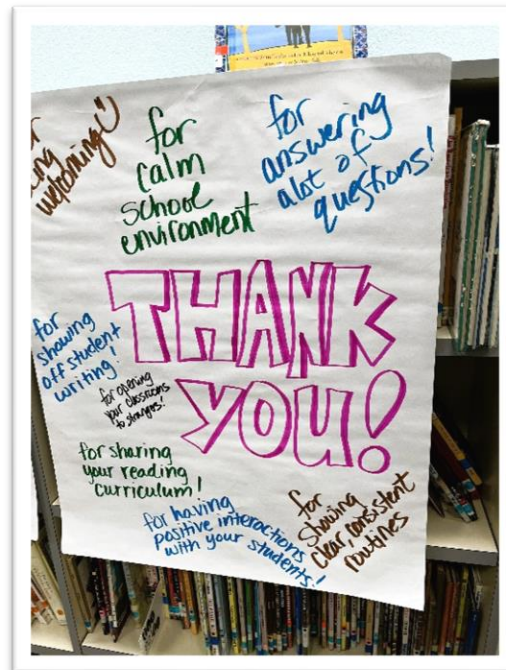 welcoming!
for
calm
school
environment
for
answering
alot of
questions!
THANK
YOU!
for
showing
off student
writing!
for opening
your classrooms
to strangers!
for sharing
your reading
curriculum!
for having
positive interactions
with your students!
for
showing
clear, consistent
routines